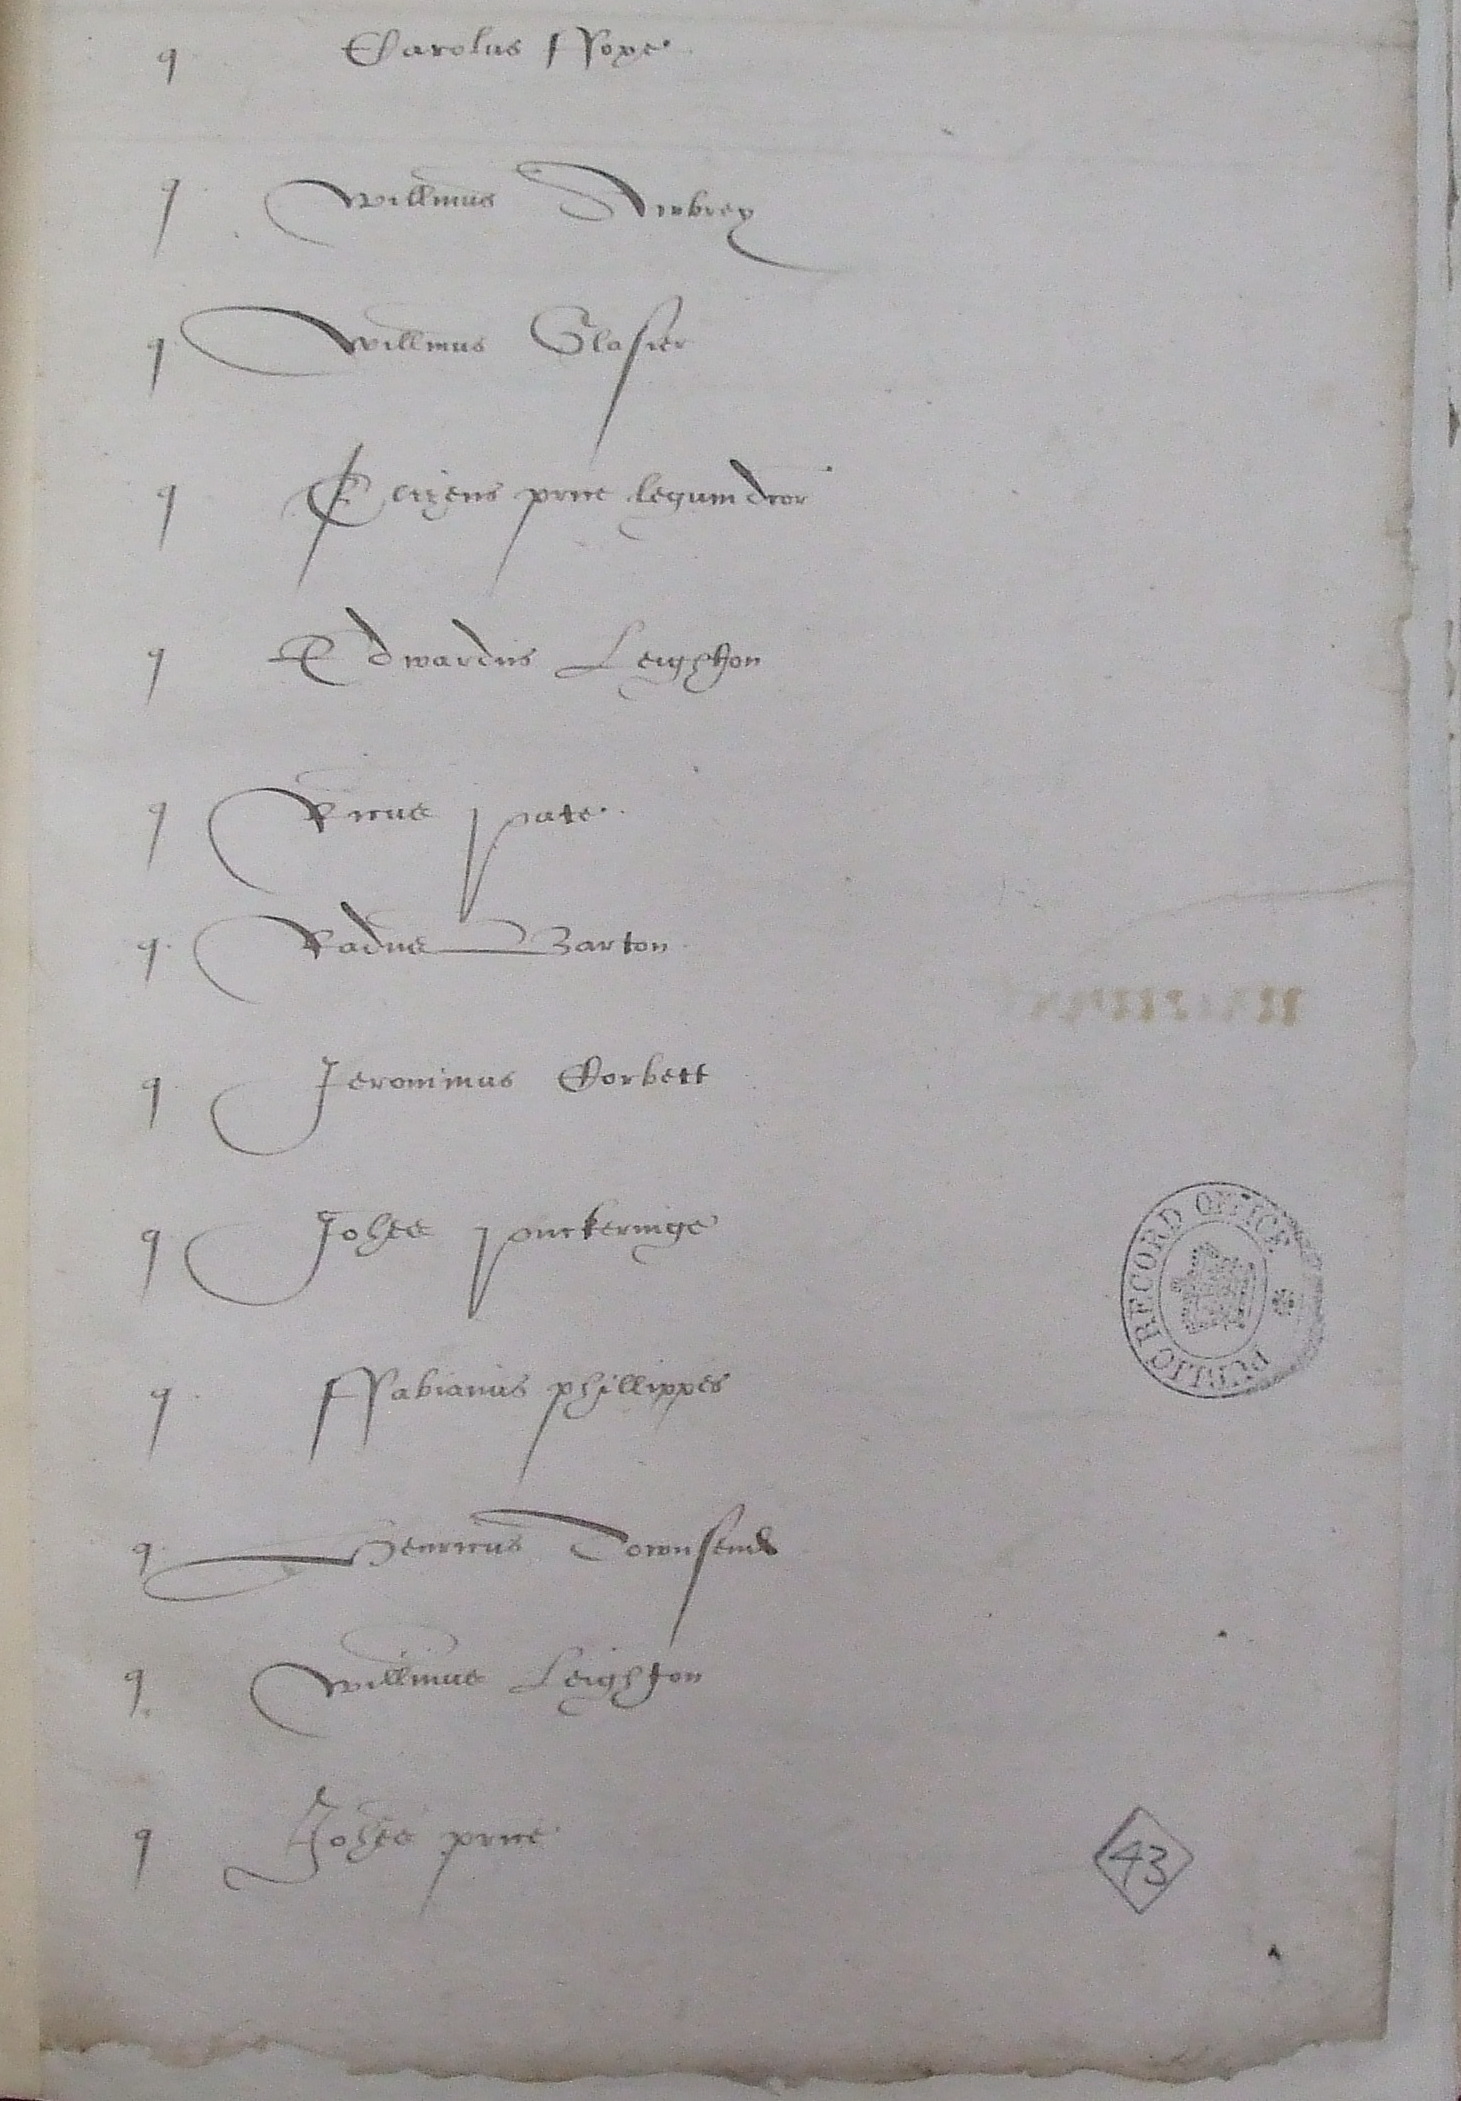 q Carolus ffoxe
q Willmus Awbrey
q Willmus Glasier
q price legum dcor
q Edwardus Leighton
q Ricus pate
q Radus Barton
q Jeronimus Corbett
q Johes puckeringe
q ffabianus phillippes
q Henricus Townsend
q Willmus Leighton
q Johes price
PUBLIC RECORD OFFICE
43